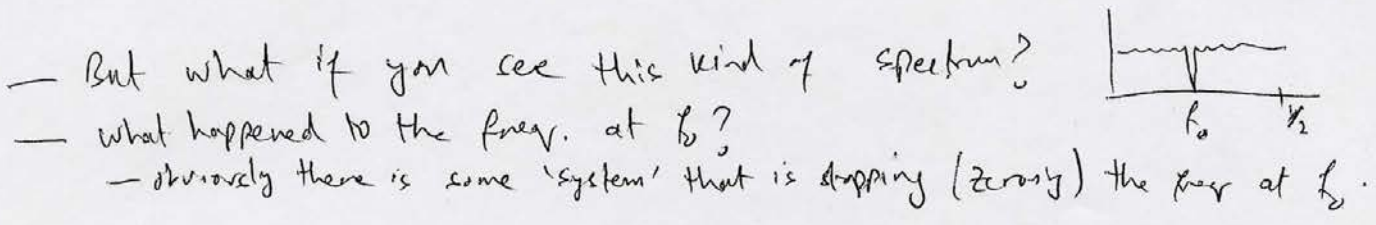 — But what if you see this kind of spectrum?
f₀ 1/2
— what happened to the freq. at f₀?
— obviously there is some 'system' that is stopping (zeroing) the freq at f₀.